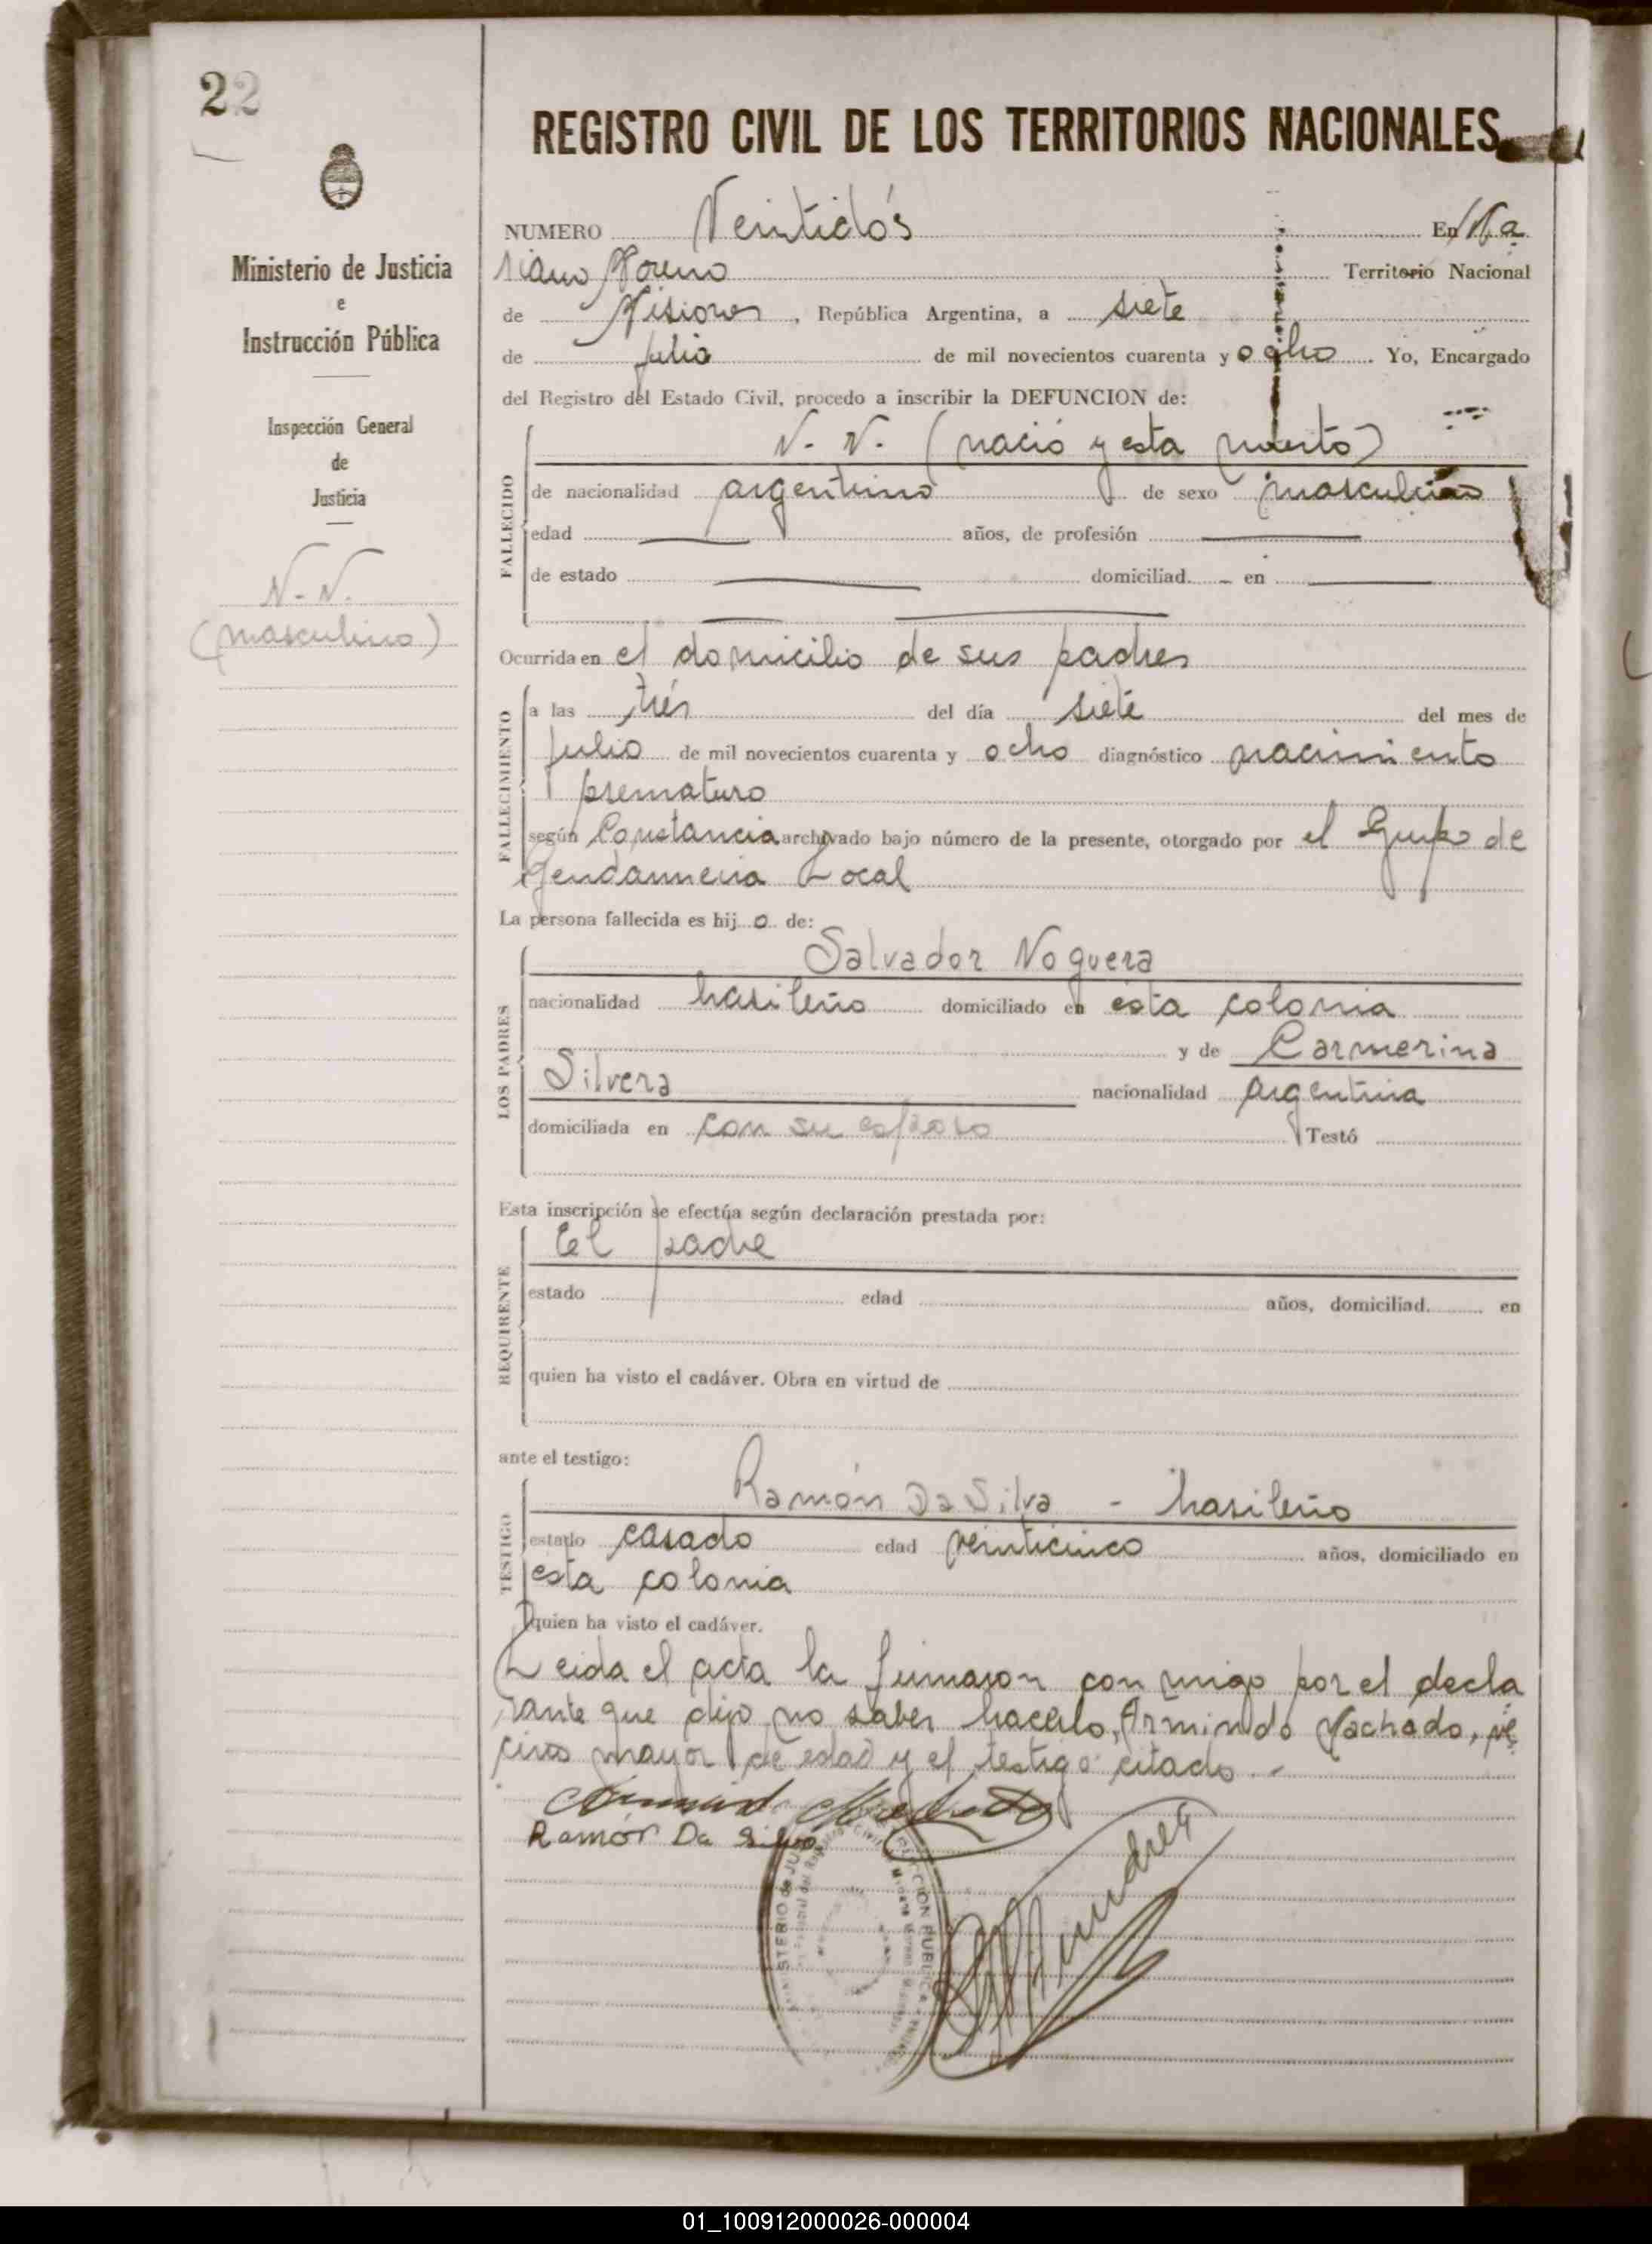 22
Ministerio de Justicia
e
Instrucción Pública
Inspección General
de
Justicia
N. N.
(masculino)
REGISTRO CIVIL DE LOS TERRITORIOS NACIONALES
NUMERO Veintidós En Ma
riano Moreno Territorio Nacional
de Misiones, República Argentina, a siete
de julio de mil novecientos cuarenta y ocho. Yo, Encargado
del Registro del Estado Civil, procedo a inscribir la DEFUNCION de:
N. N. (nació y esta muerto)
FALLECIDO
de nacionalidad argentino de sexo masculino
edad años, de profesión
de estado domiciliad. - en
Ocurrida en el domicilio de sus padres
FALLECIMIENTO
a las trés del día siete del mes de
julio de mil novecientos cuarenta y ocho diagnóstico nacimiento
prematuro
según Constancia archivado bajo número de la presente, otorgado por el Grupo de
Gendarmeria Local
La persona fallecida es hijo de:
Salvador Noguera
LOS PADRES
nacionalidad brasileño domiciliado en esta colonia
y de Carmerina
Silvera nacionalidad argentina
domiciliada en con su esposo Testó
Esta inscripción se efectúa según declaración prestada por:
El padre
REQUIRENTE
estado edad años, domiciliad. en
quien ha visto el cadáver. Obra en virtud de
ante el testigo:
Ramón Da Silva - brasileño
TESTIGO
estado casado edad veinticinco años, domiciliado en
esta colonia
quien ha visto el cadáver.
Leida el acta la firmaron conmigo por el decla
rante que dijo no saber hacerlo, Armindo Machado, ve
cino mayor de edad y el testigo citado.-
Ramór Da Silva
01_100912000026-000004